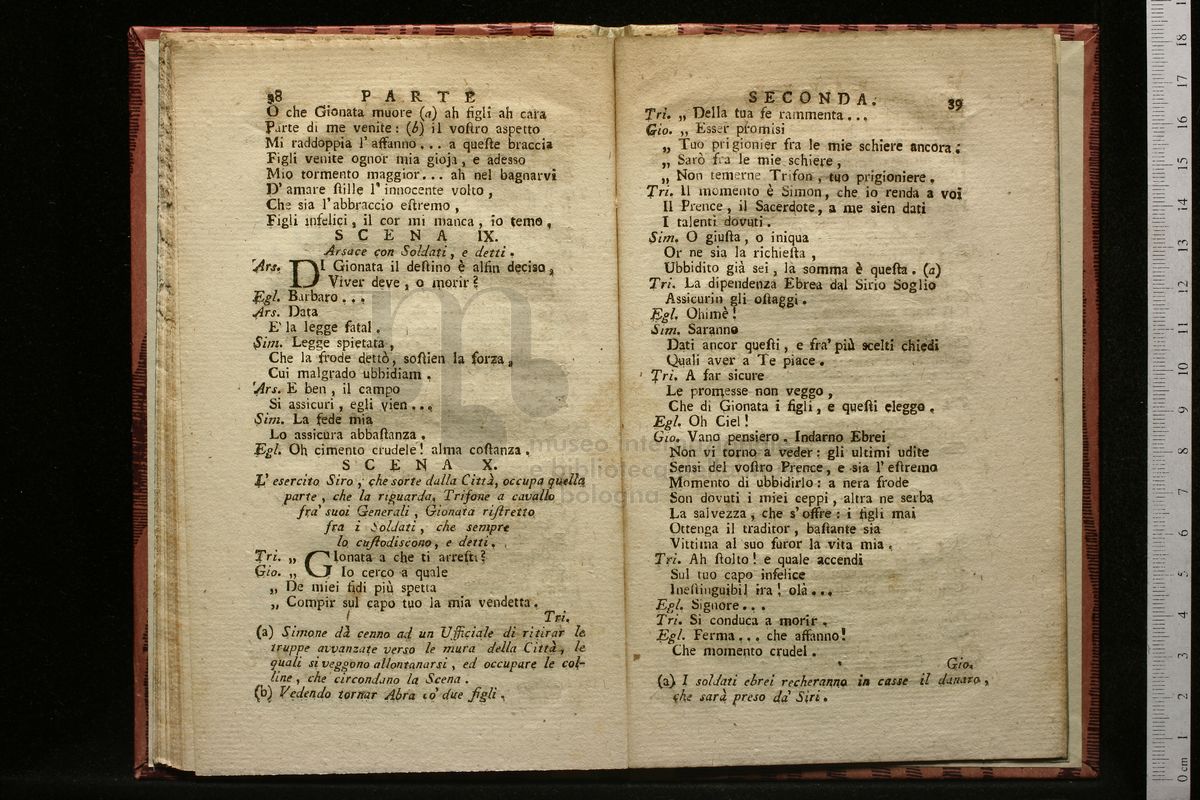 38 PARTE
O che Gionata muore (a) ah figli ah cara
Parte di me venite: (b) il voſtro aspetto
Mi raddoppia l'affanno... a queſte braccia
Figli venite ognor mia gioja, e adesso
Mio tormento maggior... ah nel bagnarvi
D'amare ſtille l'innocente volto,
Che sia l'abbraccio eſtremo,
Figli infelici, il cor mi manca, io temo,
SCENA IX.
Arsace con Soldati, e detti.
Ars. DI Gionata il deſtino è alfin deciso,
Viver deve, o morir?
Egl. Barbaro...
Ars. Data
E' la legge fatal.
Sim. Legge spietata,
Che la frode dettò, soſtien la forza,
Cui malgrado ubbidiam.
Ars. E ben, il campo
Si assicuri, egli vien...
Sim. La fede mia
Lo assicura abbaſtanza.
Egl. Oh cimento crudele! alma coſtanza.
SCENA X.
L'esercito Siro, che sorte dalla Città, occupa quella
parte, che la riguarda, Trifone a cavallo
fra' suoi Generali, Gionata riſtretto
fra i Soldati, che sempre
lo cuſtodiscono, e detti.
Tri. „ GIonata a che ti arreſti?
Gio. „ Io cerco a quale
„ De miei fidi più spetta
„ Compir sul capo tuo la mia vendetta.
Tri.
(a) Simone dà cenno ad un Ufficiale di ritirar le
truppe avvanzate verso le mura della Città, le
quali si veggono allontanarsi, ed occupare le col-
line, che circondano la Scena.
(b) Vedendo tornar Abra co' due figli.
SECONDA. 39
Tri. „ Della tua fe rammenta...
Gio. „ Esser promisi
„ Tuo prigionier fra le mie schiere ancora:
„ Sarò fra le mie schiere,
„ Non temerne Trifon, tuo prigioniere.
Tri. Il momento è Simon, che io renda a voi
Il Prence, il Sacerdote, a me sien dati
I talenti dovuti.
Sim. O giuſta, o iniqua
Or ne sia la richieſta,
Ubbidito già sei, la somma è queſta. (a)
Tri. La dipendenza Ebrea dal Sirio Soglio
Assicurin gli oſtaggi.
Egl. Ohimè!
Sim. Saranno
Dati ancor queſti, e fra' più scelti chiedi
Quali aver a Te piace.
Tri. A far sicure
Le promesse non veggo,
Che di Gionata i figli, e queſti eleggo.
Egl. Oh Ciel!
Gio. Vano pensiero. Indarno Ebrei
Non vi torno a veder: gli ultimi udite
Sensi del voſtro Prence, e sia l'eſtremo
Momento di ubbidirlo: a nera frode
Son dovuti i miei ceppi, altra ne serba
La salvezza, che s'offre: i figli mai
Ottenga il traditor, baſtante sia
Vittima al suo furor la vita mia.
Tri. Ah ſtolto! e quale accendi
Sul tuo capo infelice
Ineſtinguibil ira! olà...
Egl. Signore...
Tri. Si conduca a morir.
Egl. Ferma... che affanno!
Che momento crudel.
Gio.
(a) I soldati ebrei recheranno in casse il danaro,
che sarà preso da' Siri.
museo
e biblioteca
bologna
0 cm 1 2 3 4 5 6 7 8 9 10 11 12 13 14 15 16 17 18